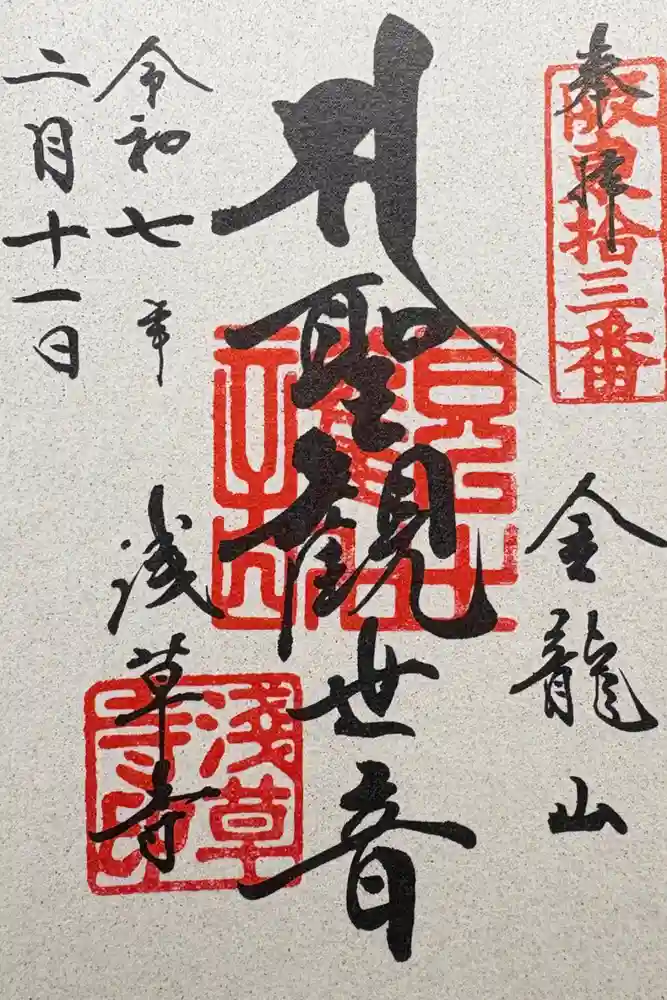 奉拝
坂東拾三番
金龍山
聖観世音
浅草寺
淺草寺印
令和七年
二月十一日